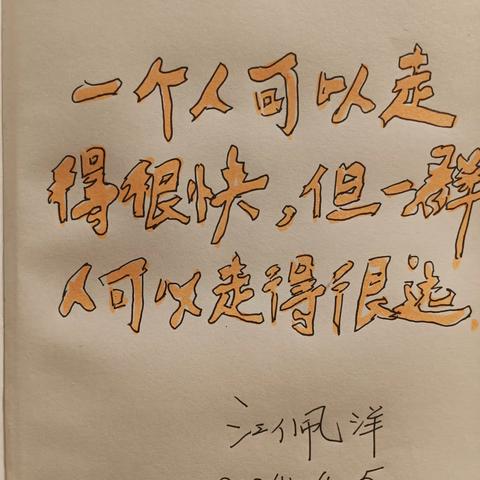 一个人可以走
得很快，但一群
人可以走得很远.
江佩洋